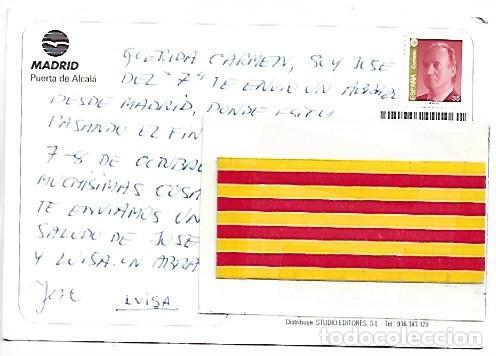 MADRID
Puerta de Alcalá
QUERIDA CARMEN, SOY JOSE
DEL "7º" TE ENVIO UN ABRAZO
DESDE MADRID, DONDE ESTOY
PASANDO EL FIN
7-8 DE OCTUBRE
MUCHISIMAS COSA
TE ENVIAMOS UN
SALUDO DE JOSE
Y LUISA. UN ABRA
Jose LUISA
ESPAÑA
Correos
Distribuye: STUDIO EDITORES, S.L. Tel. 916 343 129
todocoleccion
todocoleccion.net